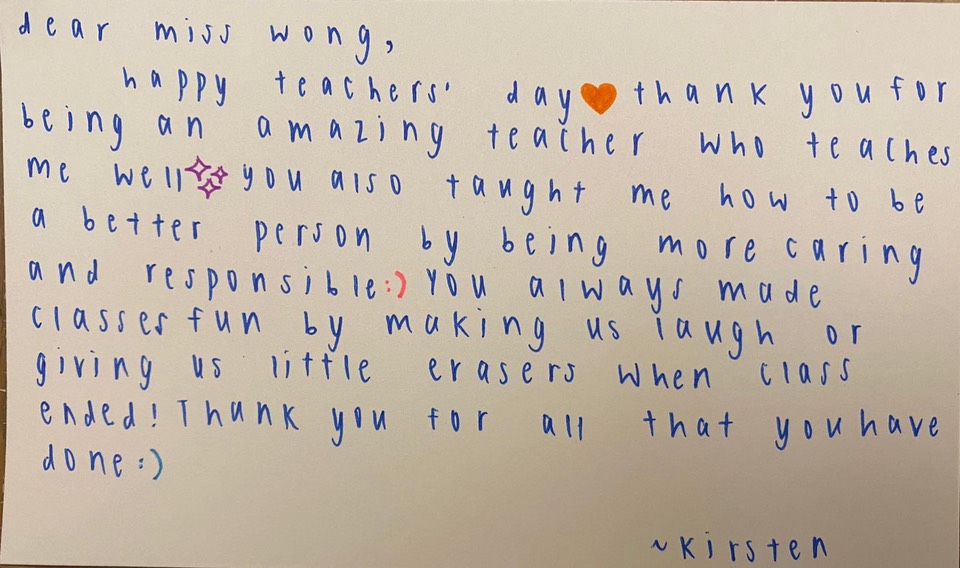 dear miss wong,
happy teachers' day🧡thank you for
being an amazing teacher who teaches
me well✨you also taught me how to be
a better person by being more caring
and responsible:) You always made
classes fun by making us laugh or
giving us little erasers when class
ended! Thank you for all that you have
done:)
~Kirsten